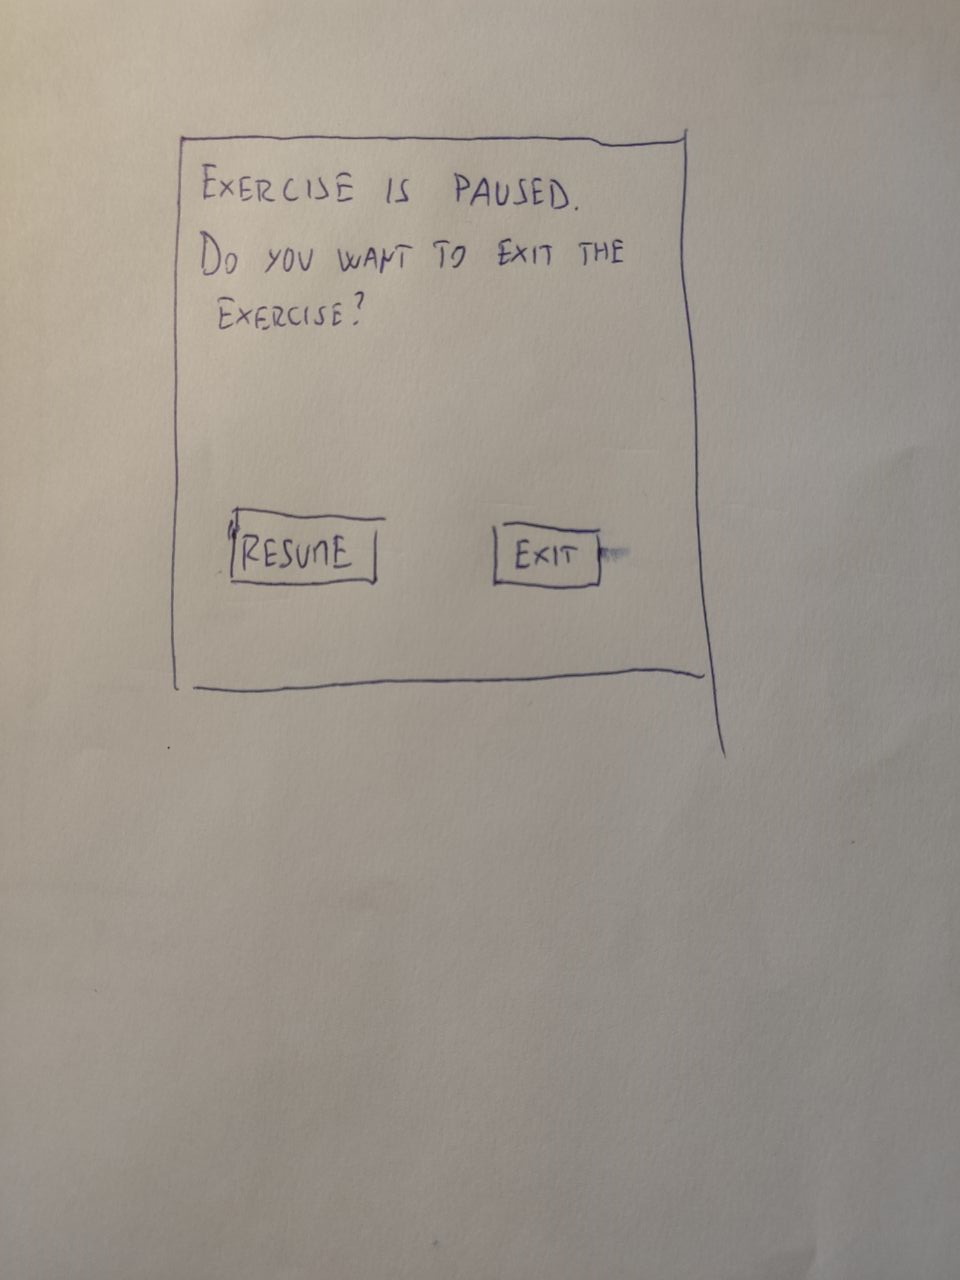 EXERCISE IS PAUSED.
DO YOU WANT TO EXIT THE
EXERCISE?
RESUME
EXIT